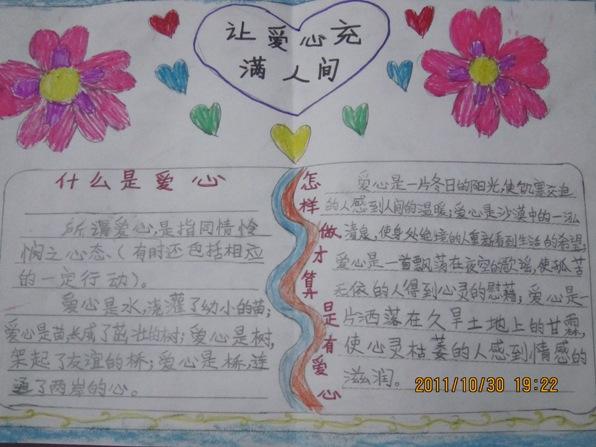 让爱心充
满人间
什么是爱心
所谓爱心,是指同情怜
悯之心态、(有时还包括相应
的一定行动)。
爱心是水,浇灌了幼小的苗;
爱心是苗,长成了茁壮的树;爱心是树,
架起了友谊的桥;爱心是桥,连
通了两岸的心。
怎样做才算是有爱心
爱心是一片冬日的阳光,使饥寒交迫
的人感到人间的温暖;爱心是沙漠中的一泓
清泉,使身处绝境的人重新看到生活的希望,
爱心是一首飘荡在夜空的歌谣,使孤苦
无依的人得到心灵的慰藉;爱心是一
片洒落在久旱土地上的甘霖,
使心灵枯萎的人感到情感的
滋润。
2011/10/30 19:22